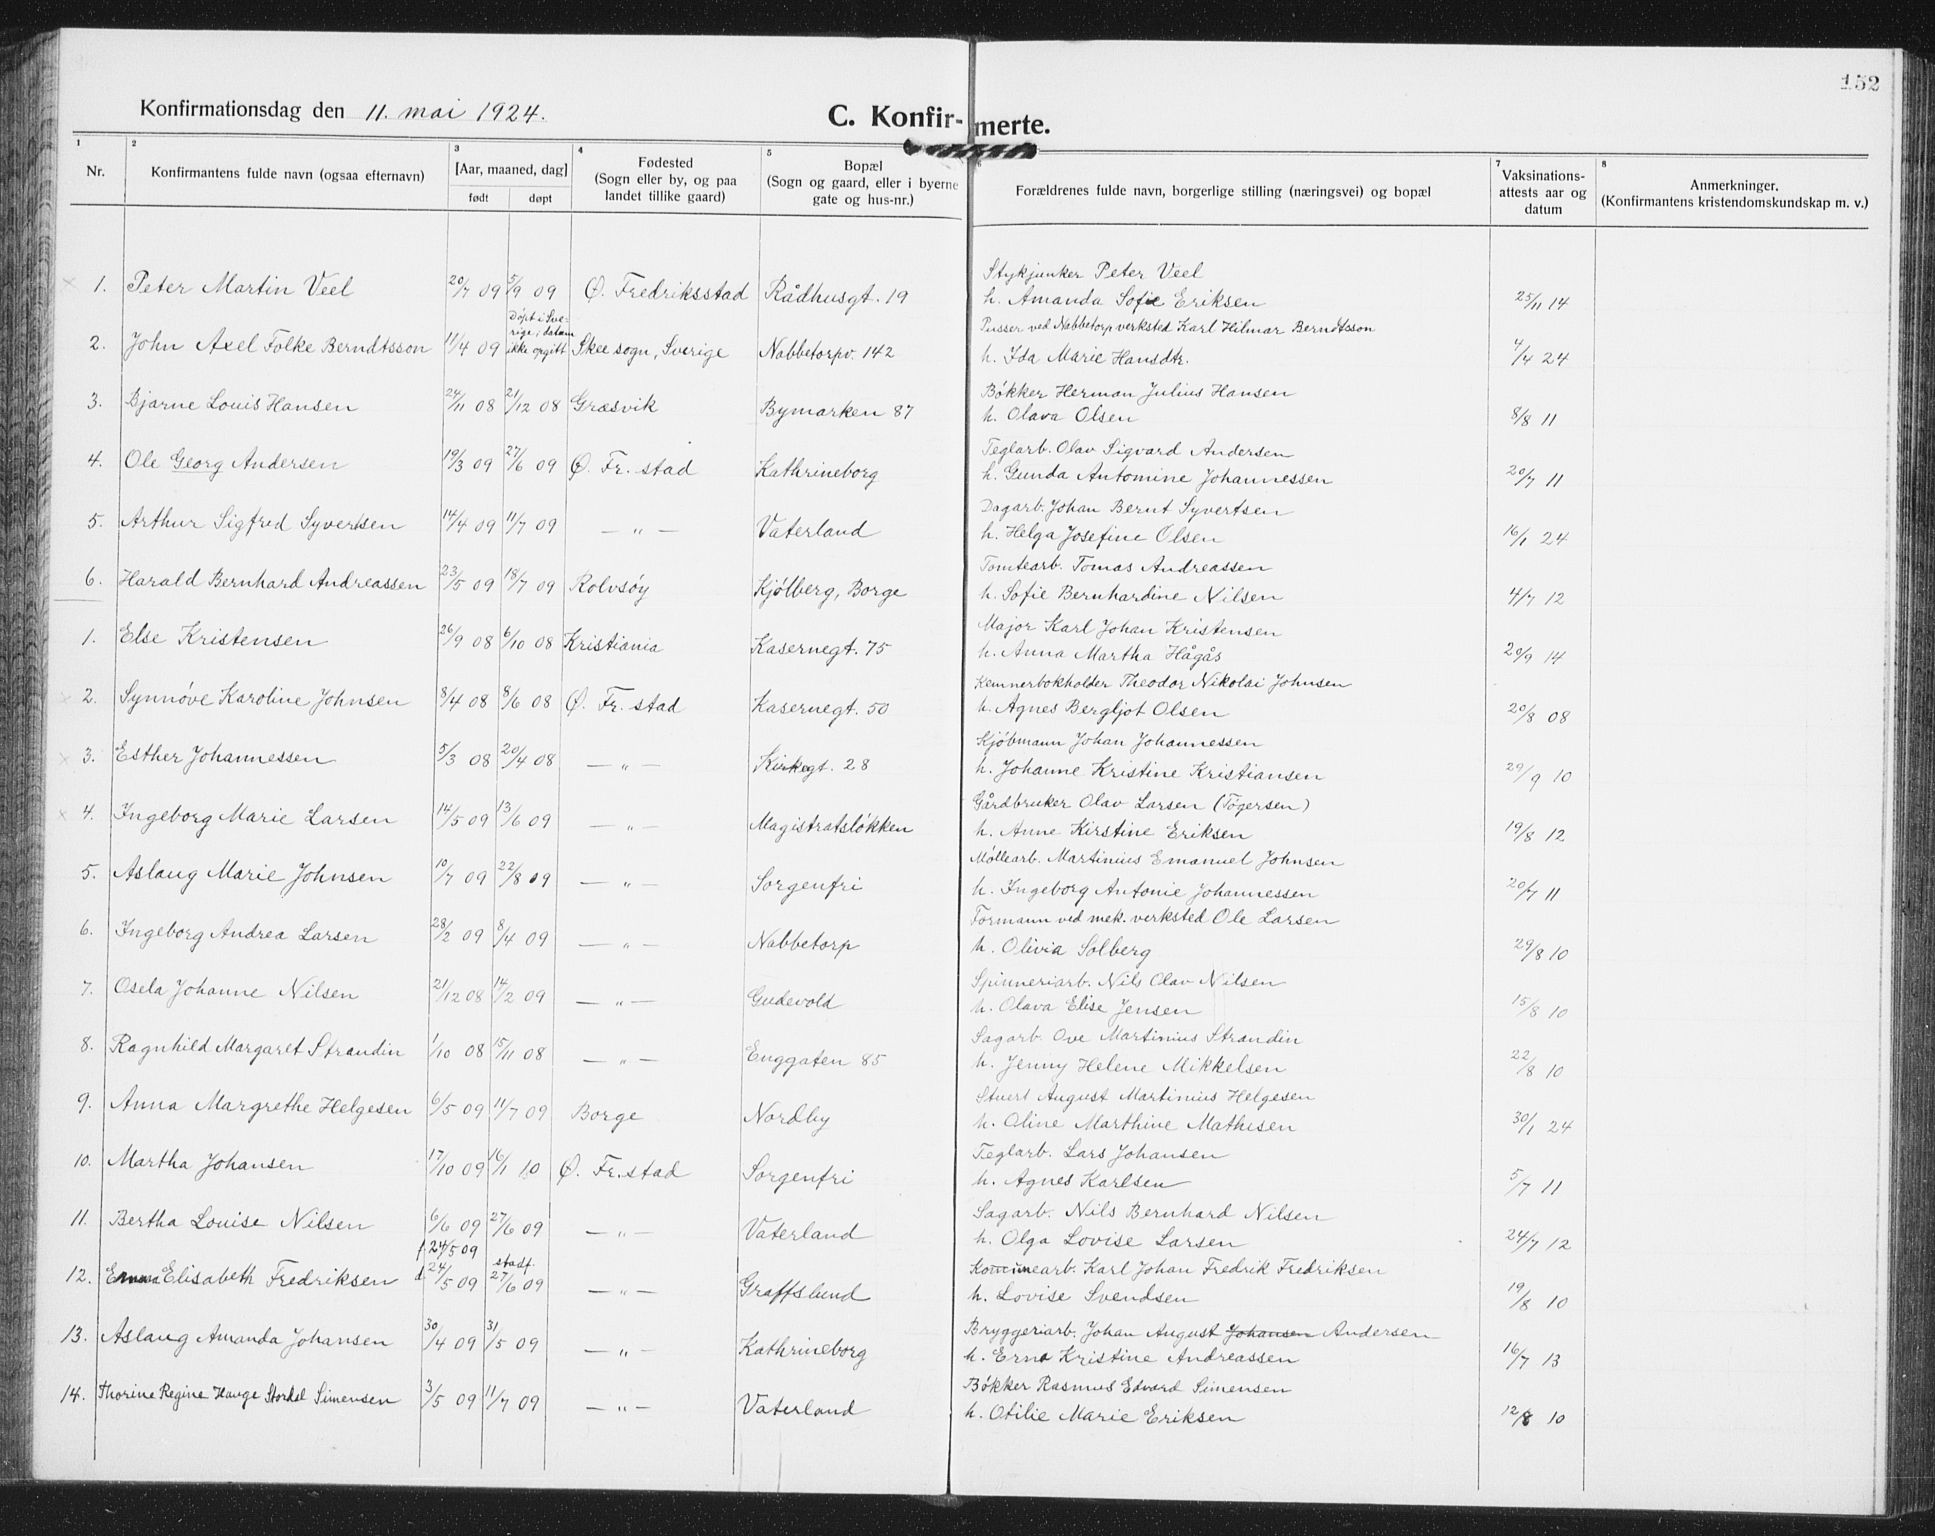 152
Konfirmationsdag den 11. mai 1924.
C. Konfir-merte.
1 2 3 4 5 6 7 8
Nr. Konfirmantens fulde navn (ogsaa efternavn) [Aar, maaned, dag] født døpt Fødested (Sogn eller by, og paa landet tillike gaard) Bopæl (Sogn og gaard, eller i byerne gate og hus-nr.) Forældrenes fulde navn, borgerlige stilling (næringsvei) og bopæl Vaksinations-attests aar og datum Anmerkninger. (Konfirmantens kristendomskundskap m. v.)
Stykjunker Peter Veel
1. Peter Martin Veel 20/7 09 5/9 09 Ø. Fredriksstad Rådhusgt. 19 h. Amanda Sofie Eriksen 25/11 14
Døpt i Sverige, datum ikke opgitt Pusser ved Nabbetorp verksted Karl Hilmar Berndtsson
2. John Axel Folke Berndtsson 11/4 09 Skee sogn, Sverige Nabbetorpv. 142 h. Ida Marie Hansdtr. 4/4 24
Bøkker Herman Julius Hansen
3. Bjarne Louis Hansen 24/11 08 21/12 08 Græsvik Bymarken 87 h. Olava Olsen 8/8 11
Teglarb. Olav Sigvard Andersen
4. Ole Georg Andersen 19/3 09 27/6 09 Ø. Fr. stad Kathrineborg h. Gunda Antomine Johannessen 20/7 11
Dagarb. Johan Bernt Syvertsen
5. Arthur Sigfred Syvertsen 14/4 09 11/7 09 — " — Vaterland h. Helga Josefine Olsen 16/1 24
Tomtearb. Tomas Andreassen
6. Harald Bernhard Andreassen 23/5 09 18/7 09 Rolvsøy Kjølberg, Borge h. Sofie Bernhardine Nilsen 4/7 12
Major Karl Johan Kristensen
1. Else Kristensen 26/9 08 6/10 08 Kristiania Kasernegt. 75 h. Anna Martha Hågås 20/9 14
Kemnerbokholder Theodor Nikolai Johnsen
2. Synnøve Karoline Johnsen 8/4 08 8/6 08 Ø. Fr. stad Kasernegt. 50 h. Agnes Bergljot Olsen 20/8 08
Kjøbmann Johan Johannessen
3. Esther Johannessen 5/3 08 20/4 08 — " — Kirkegt. 28 h. Johanne Kristine Kristiansen 29/9 10
Gårdbruker Olav Larsen (Tøgersen)
4. Ingeborg Marie Larsen 14/5 09 13/6 09 — " — Magistratsløkken h. Anne Kirstine Eriksen 19/8 12
Møllearb. Martinius Emanuel Johnsen
5. Aslaug Marie Johnsen 10/7 09 22/8 09 — " — Sorgenfri h. Ingeborg Antonie Johannessen 20/7 11
Formann ved mek. verksted Ole Larsen
6. Ingeborg Andrea Larsen 28/2 09 8/4 09 — " — Nabbetorp h. Olivia Solberg 29/8 10
Spinneriarb. Nils Olav Nilsen
7. Osela Johanne Nilsen 21/12 08 14/2 09 — " — Gudevold h. Olava Elise Jensen 15/8 10
Sagarb. Ove Martinius Strandin
8. Ragnhild Margaret Strandin 1/10 08 15/11 08 — " — Enggaten 85 h. Jenny Helene Mikkelsen 22/8 10
Stuert August Martinius Helgesen
9. Anna Margrethe Helgesen 6/5 09 11/7 09 Borge Nordby h. Oline Marthine Mathisen 30/1 24
Teglarb. Lars Johansen
10. Martha Johansen 17/10 09 16/1 10 Ø. Fr. stad Sorgenfri h. Agnes Karlsen 5/7 11
Sagarb. Nils Bernhard Nilsen
11. Bertha Louise Nilsen 6/6 09 27/6 09 — " — Vaterland h. Olga Lovise Larsen 24/7 12
f. 24/5 09 stadf. Komunearb. Karl Johan Fredrik Fredriksen
12. Emma Elisabeth Fredriksen d. 24/5 09 27/6 09 — " — Graffslund h. Lovise Svendsen 19/8 10
Bryggeriarb. Johan August Johansen Andersen
13. Aslaug Amanda Johansen 30/4 09 31/5 09 — " — Kathrineborg h. Erna Kristine Andreassen 16/7 13
Bøkker Rasmus Edvard Simensen
14. Thorine Regine Hauge Stordal Simensen 3/5 09 11/7 09 — " — Vaterland h. Otilie Marie Eriksen 12/8 10